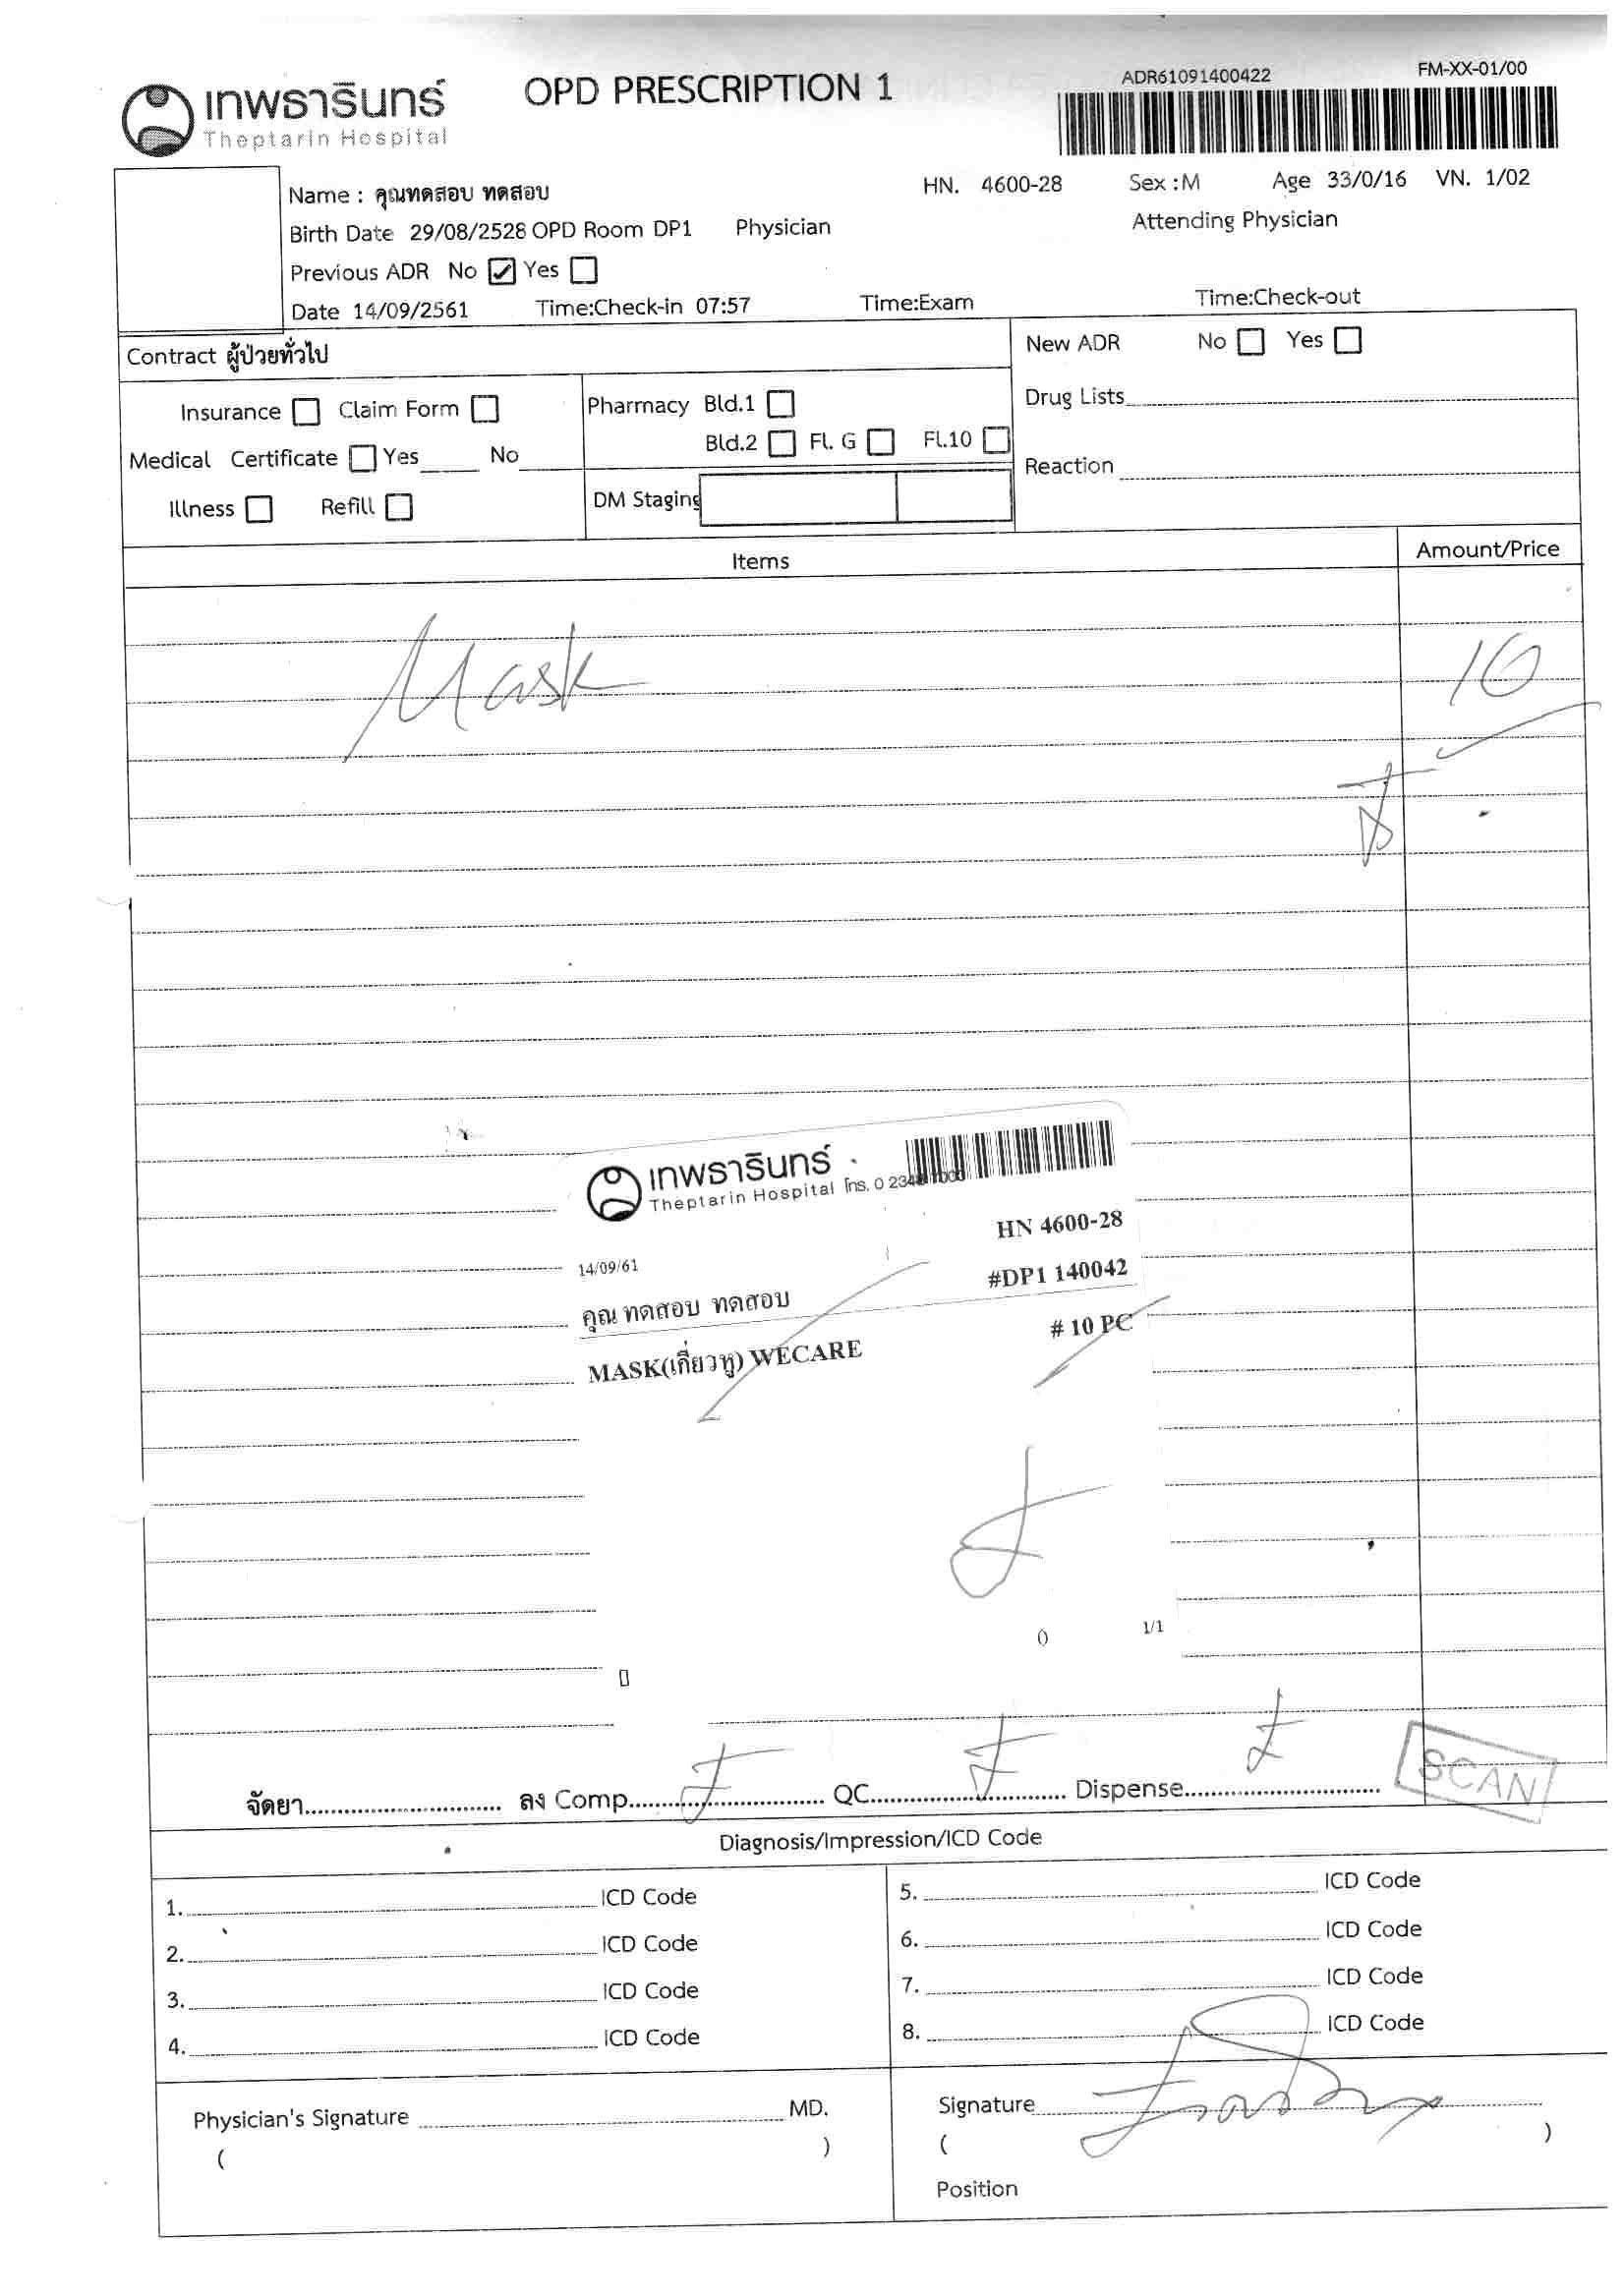 เทพธารินทร์
Theptarin Hospital
OPD PRESCRIPTION 1
ADR61091400422
FM-XX-01/00
Name : คุณทดสอบ ทดสอบ HN. 4600-28 Sex :M Age 33/0/16 VN. 1/02
Birth Date 29/08/2528 OPD Room DP1 Physician Attending Physician
Previous ADR No Yes
Date 14/09/2561 Time:Check-in 07:57 Time:Exam Time:Check-out
Contract ผู้ป่วยทั่วไป New ADR No Yes
Insurance Claim Form Pharmacy Bld.1 Drug Lists
Bld.2 Fl. G Fl.10
Medical Certificate Yes No Reaction
Illness Refill DM Staging
Items Amount/Price
Mask 10
เทพธารินทร์
Theptarin Hospital โทร. 0 2348 7000
HN 4600-28
14/09/61 #DP1 140042
คุณ ทดสอบ ทดสอบ
MASK(เกี่ยวหู) WECARE # 10 PC
() 1/1
จัดยา ลง Comp QC Dispense
SCAN
Diagnosis/Impression/ICD Code
1. ICD Code 5. ICD Code
2. ICD Code 6. ICD Code
3. ICD Code 7. ICD Code
4. ICD Code 8. ICD Code
Physician's Signature MD. Signature
( ) ( )
Position